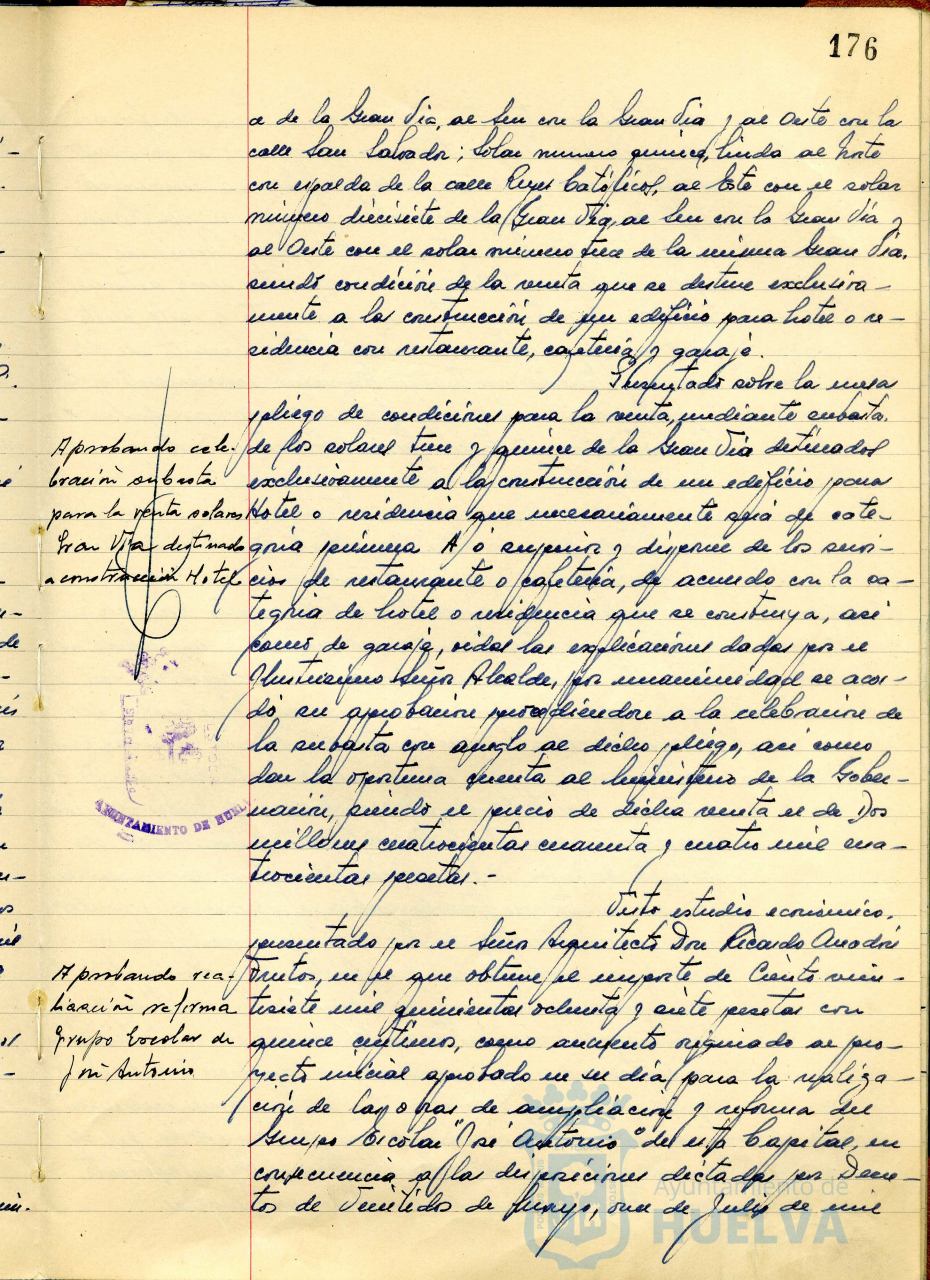 176
a de la Gran Vía, al Sur con la Gran Vía y al Oeste con la
calle San Salvador; Solar número quince, linda al Norte
con espalda de la calle Reyes Católicos, al Este con el solar
número diecisiete de la Gran Vía, al Sur con la Gran Vía y
al Oeste con el solar número trece de la misma Gran Vía,
siendo condición de la venta que se destine exclusiva-
mente a la construcción de un edificio para hotel o re-
sidencia con restaurante, cafetería y garaje.
Presentado sobre la mesa
pliego de condiciones para la venta, mediante subasta,
de los solares trece y quince de la Gran Vía destinados
exclusivamente a la construcción de un edificio para
Hotel o residencia que necesariamente será de cate-
goría primera A ó superior y disponer de los servi-
cios de restaurante o cafetería, de acuerdo con la ca-
tegoría de hotel o residencia que se construya, así
como de garaje, oidas las explicaciones dadas por el
Ilustrísimo Señor Alcalde, por unanimidad se acor-
dó su aprobación procediendose a la celebración de
la subasta con arreglo al dicho pliego, así como
dar la oportuna cuenta al Ministerio de la Gober-
nación, siendo el precio de dicha venta el de Dos
millones cuatrocientas cuarenta y cuatro mil cua-
trocientas pesetas.-
Visto estudio económico,
presentado por el Señor Arquitecto Don Ricardo Anadón
Frutos, en el que obtiene el importe de Ciento vein-
tisiete mil quinientas ochenta y siete pesetas con
quince céntimos, como aumento originado al pro-
yecto inicial aprobado en su día para la realiza-
ción de las obras de ampliación y reforma del
Grupo Escolar "José Antonio" de esta Capital, en
consecuencia a las disposiciones dictadas por Decre-
tos de Veintidos de Mayo, once de Julio de mil
Aprobando cele-
bración subasta
para la venta solares
Gran Vía destinado
a construcción Hotel
AYUNTAMIENTO DE HUEL
Aprobando rea-
lización reforma
Grupo Escolar de
José Antonio
Ayuntamiento de
HUELVA